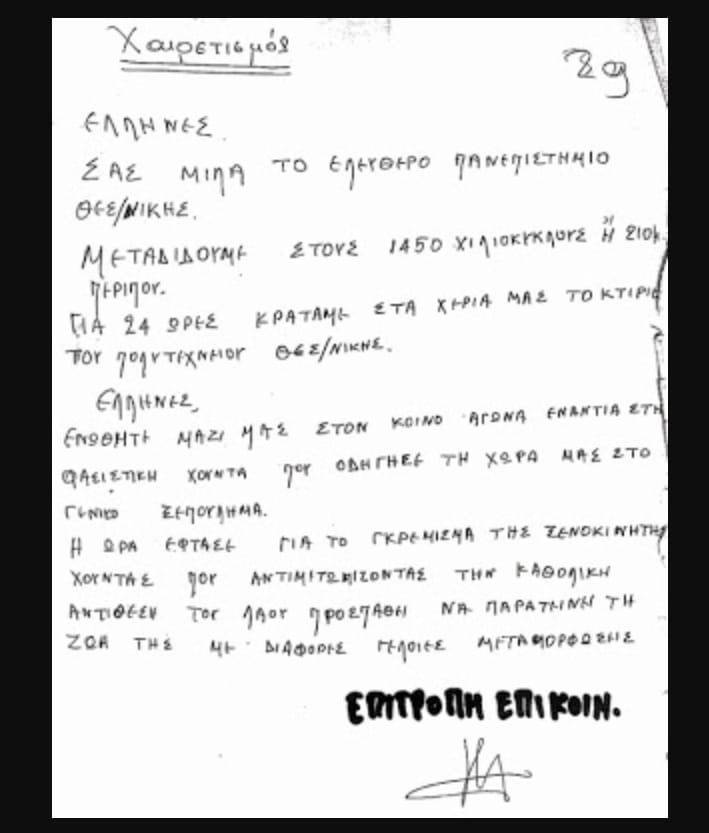 Χαιρετισμός
ΕΛΛΗΝΕΣ
ΣΑΣ ΜΙΛΑ ΤΟ ΕΛΕΥΘΕΡΟ ΠΑΝΕΠΙΣΤΗΜΙΟ
ΘΕΣ/ΝΙΚΗΣ.
ΜΕΤΑΔΙΔΟΥΜΕ ΣΤΟΥΣ 1450 ΧΙΛΙΟΚΥΚΛΟΥΣ Ἤ 210μ.
ΠΕΡΙΠΟΥ.
ΓΙΑ 24 ΩΡΕΣ ΚΡΑΤΑΜΕ ΣΤΑ ΧΕΡΙΑ ΜΑΣ ΤΟ ΚΤΙΡΙΟ
ΤΟΥ ΠΟΛΥΤΕΧΝΕΙΟΥ ΘΕΣ/ΝΙΚΗΣ.
ΕΛΛΗΝΕΣ,
ΕΝΩΘΗΤΕ ΜΑΖΙ ΜΑΣ ΣΤΟΝ ΚΟΙΝΟ ΑΓΩΝΑ ΕΝΑΝΤΙΑ ΣΤΗ
ΦΑΣΙΣΤΙΚΗ ΧΟΥΝΤΑ ΠΟΥ ΟΔΗΓΗΣΕ ΤΗ ΧΩΡΑ ΜΑΣ ΣΤΟ
ΓΕΝΙΚΟ ΞΕΠΟΥΛΗΜΑ.
Η ΩΡΑ ΕΦΤΑΣΕ ΓΙΑ ΤΟ ΓΚΡΕΜΙΣΜΑ ΤΗΣ ΞΕΝΟΚΙΝΗΤΗΣ
ΧΟΥΝΤΑΣ ΠΟΥ ΑΝΤΙΜΕΤΩΠΙΖΟΝΤΑΣ ΤΗΝ ΚΑΘΟΛΙΚΗ
ΑΝΤΙΘΕΣΗ ΤΟΥ ΛΑΟΥ ΠΡΟΣΠΑΘΗ ΝΑ ΠΑΡΑΤΕΙΝΗ ΤΗ
ΖΩΑ ΤΗΣ ΜΕ ΔΙΑΦΟΡΕΣ ΓΕΛΟΙΕΣ ΜΕΤΑΜΟΡΦΩΣΗΣ
ΕΠΙΤΡΟΠΗ ΕΠΙΚΟΙΝ.